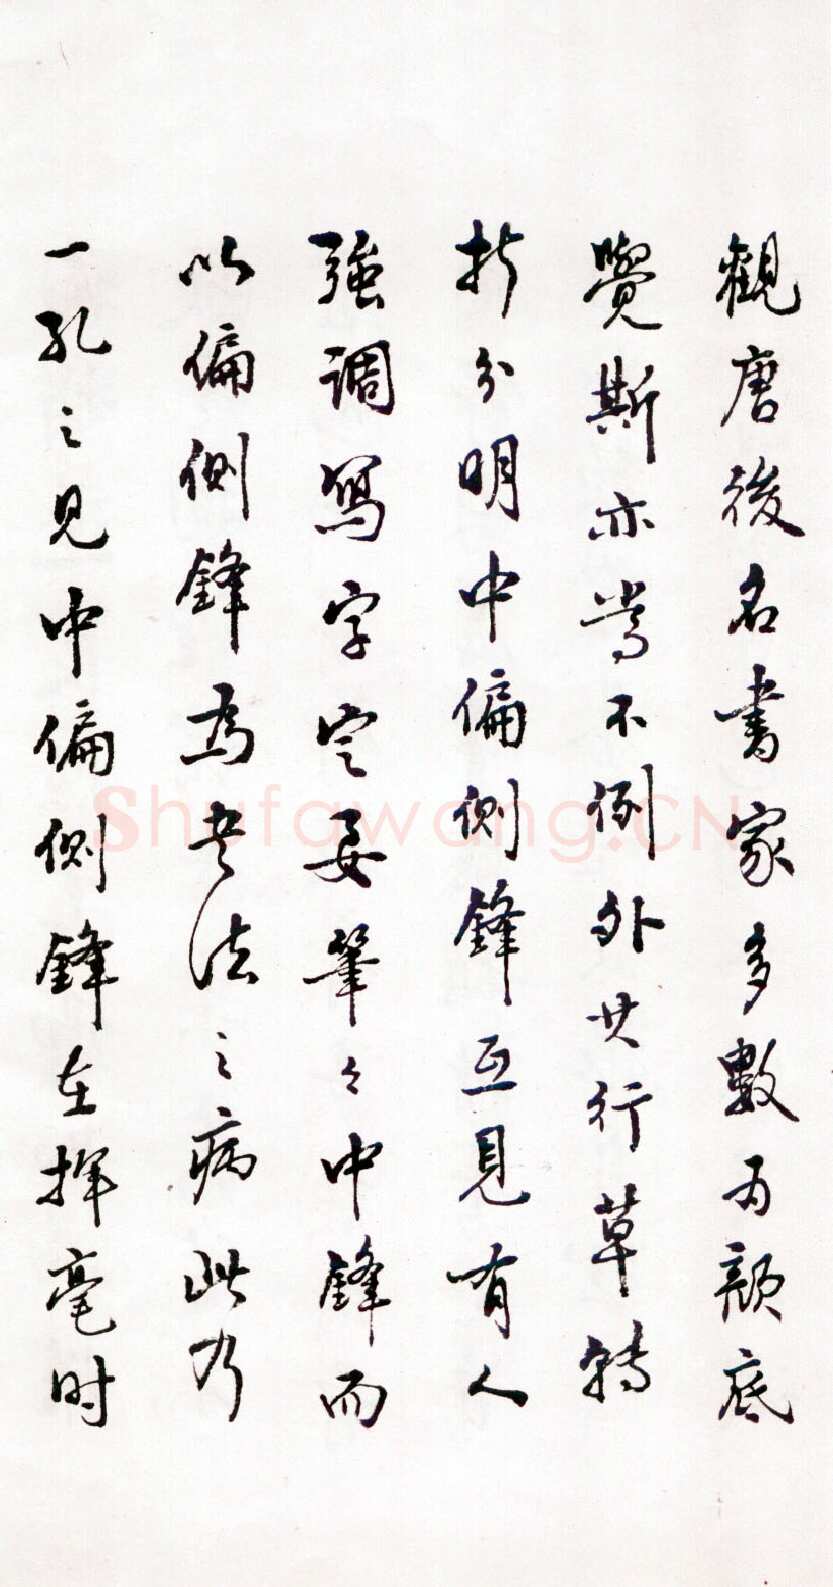 觀唐後名書家多數为顏底
覺斯亦當不例外其行草轉
折分明中偏側鋒互見有人
強調寫字定要筆々中鋒而
以偏側鋒為书法之病此乃
一孔之見中偏側鋒在揮毫时
Shufawang.CN